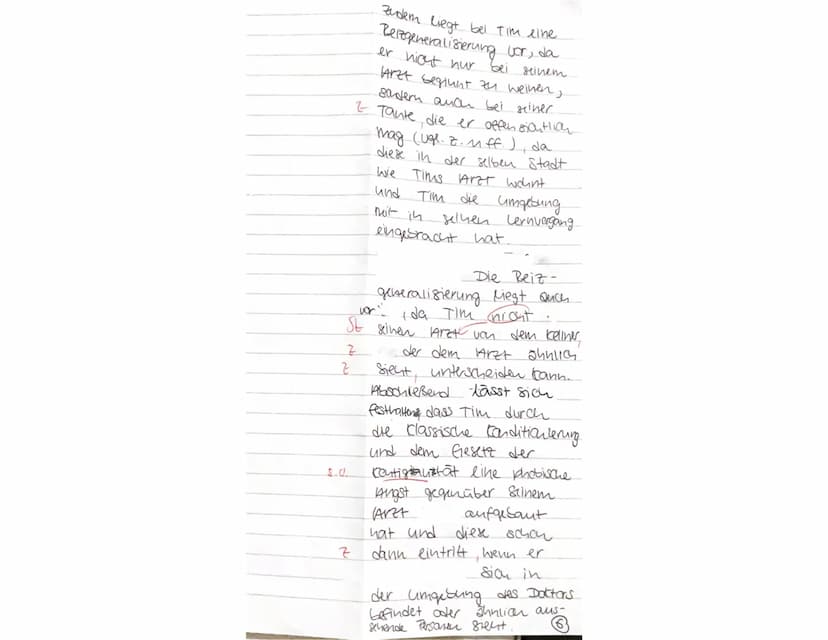 Zudem liegt bei Tim eine
Reizgeneralisierung vor, da
er nicht nur bei seinem
Arzt beginnt zu weinen,
sondern auch bei seiner
Z Tante, die er offensichtlich
mag (vgl. Z. 11 ff), da
diese in der selben Stadt
wie Tims Arzt wohnt
und Tim die Umgebung
mit in seinen Lernvorgang
eingebracht hat.
Die Reiz-
generalisierung liegt auch
vor, da Tim nicht
St seinen Arzt von dem Kellner,
Z der dem Arzt ähnlich
Z sieht, unterscheiden kann.
Abschließend lässt sich
festhalten, dass Tim durch
die klassische Konditionierung
und dem Gesetz der
s.o. Kontiguität eine phobische
Angst gegenüber seinem
Arzt aufgebaut
hat und diese schon
Z dann eintritt, wenn er
sich in
der Umgebung des Doktors
befindet oder ähnlich aus-
sehende Personen sieht. 6